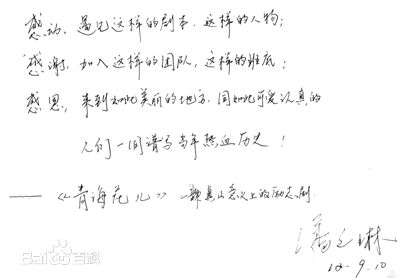 感动,遇见这样的剧本,这样的人物;
感谢,加入这样的团队,这样的班底;
感恩,来到如此美丽的地方,同如此可爱认真的
人们一同谱写当年热血历史!
——《青海花儿》一部真正意义上的励志剧.
潘之琳
Bai百科